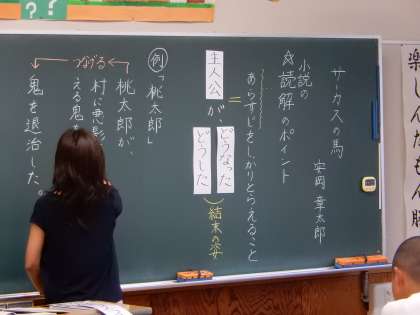 楽しんだもん勝
サーカスの馬
安岡 章太郎
小説の
☆読解のポイント
あらすじをしっかりとらえること
=
主人公が、
どうなった
どうした
結末の姿
例「桃太郎」
つなげる
桃太郎が、
村に悪影
える鬼を
鬼を退治した。
??